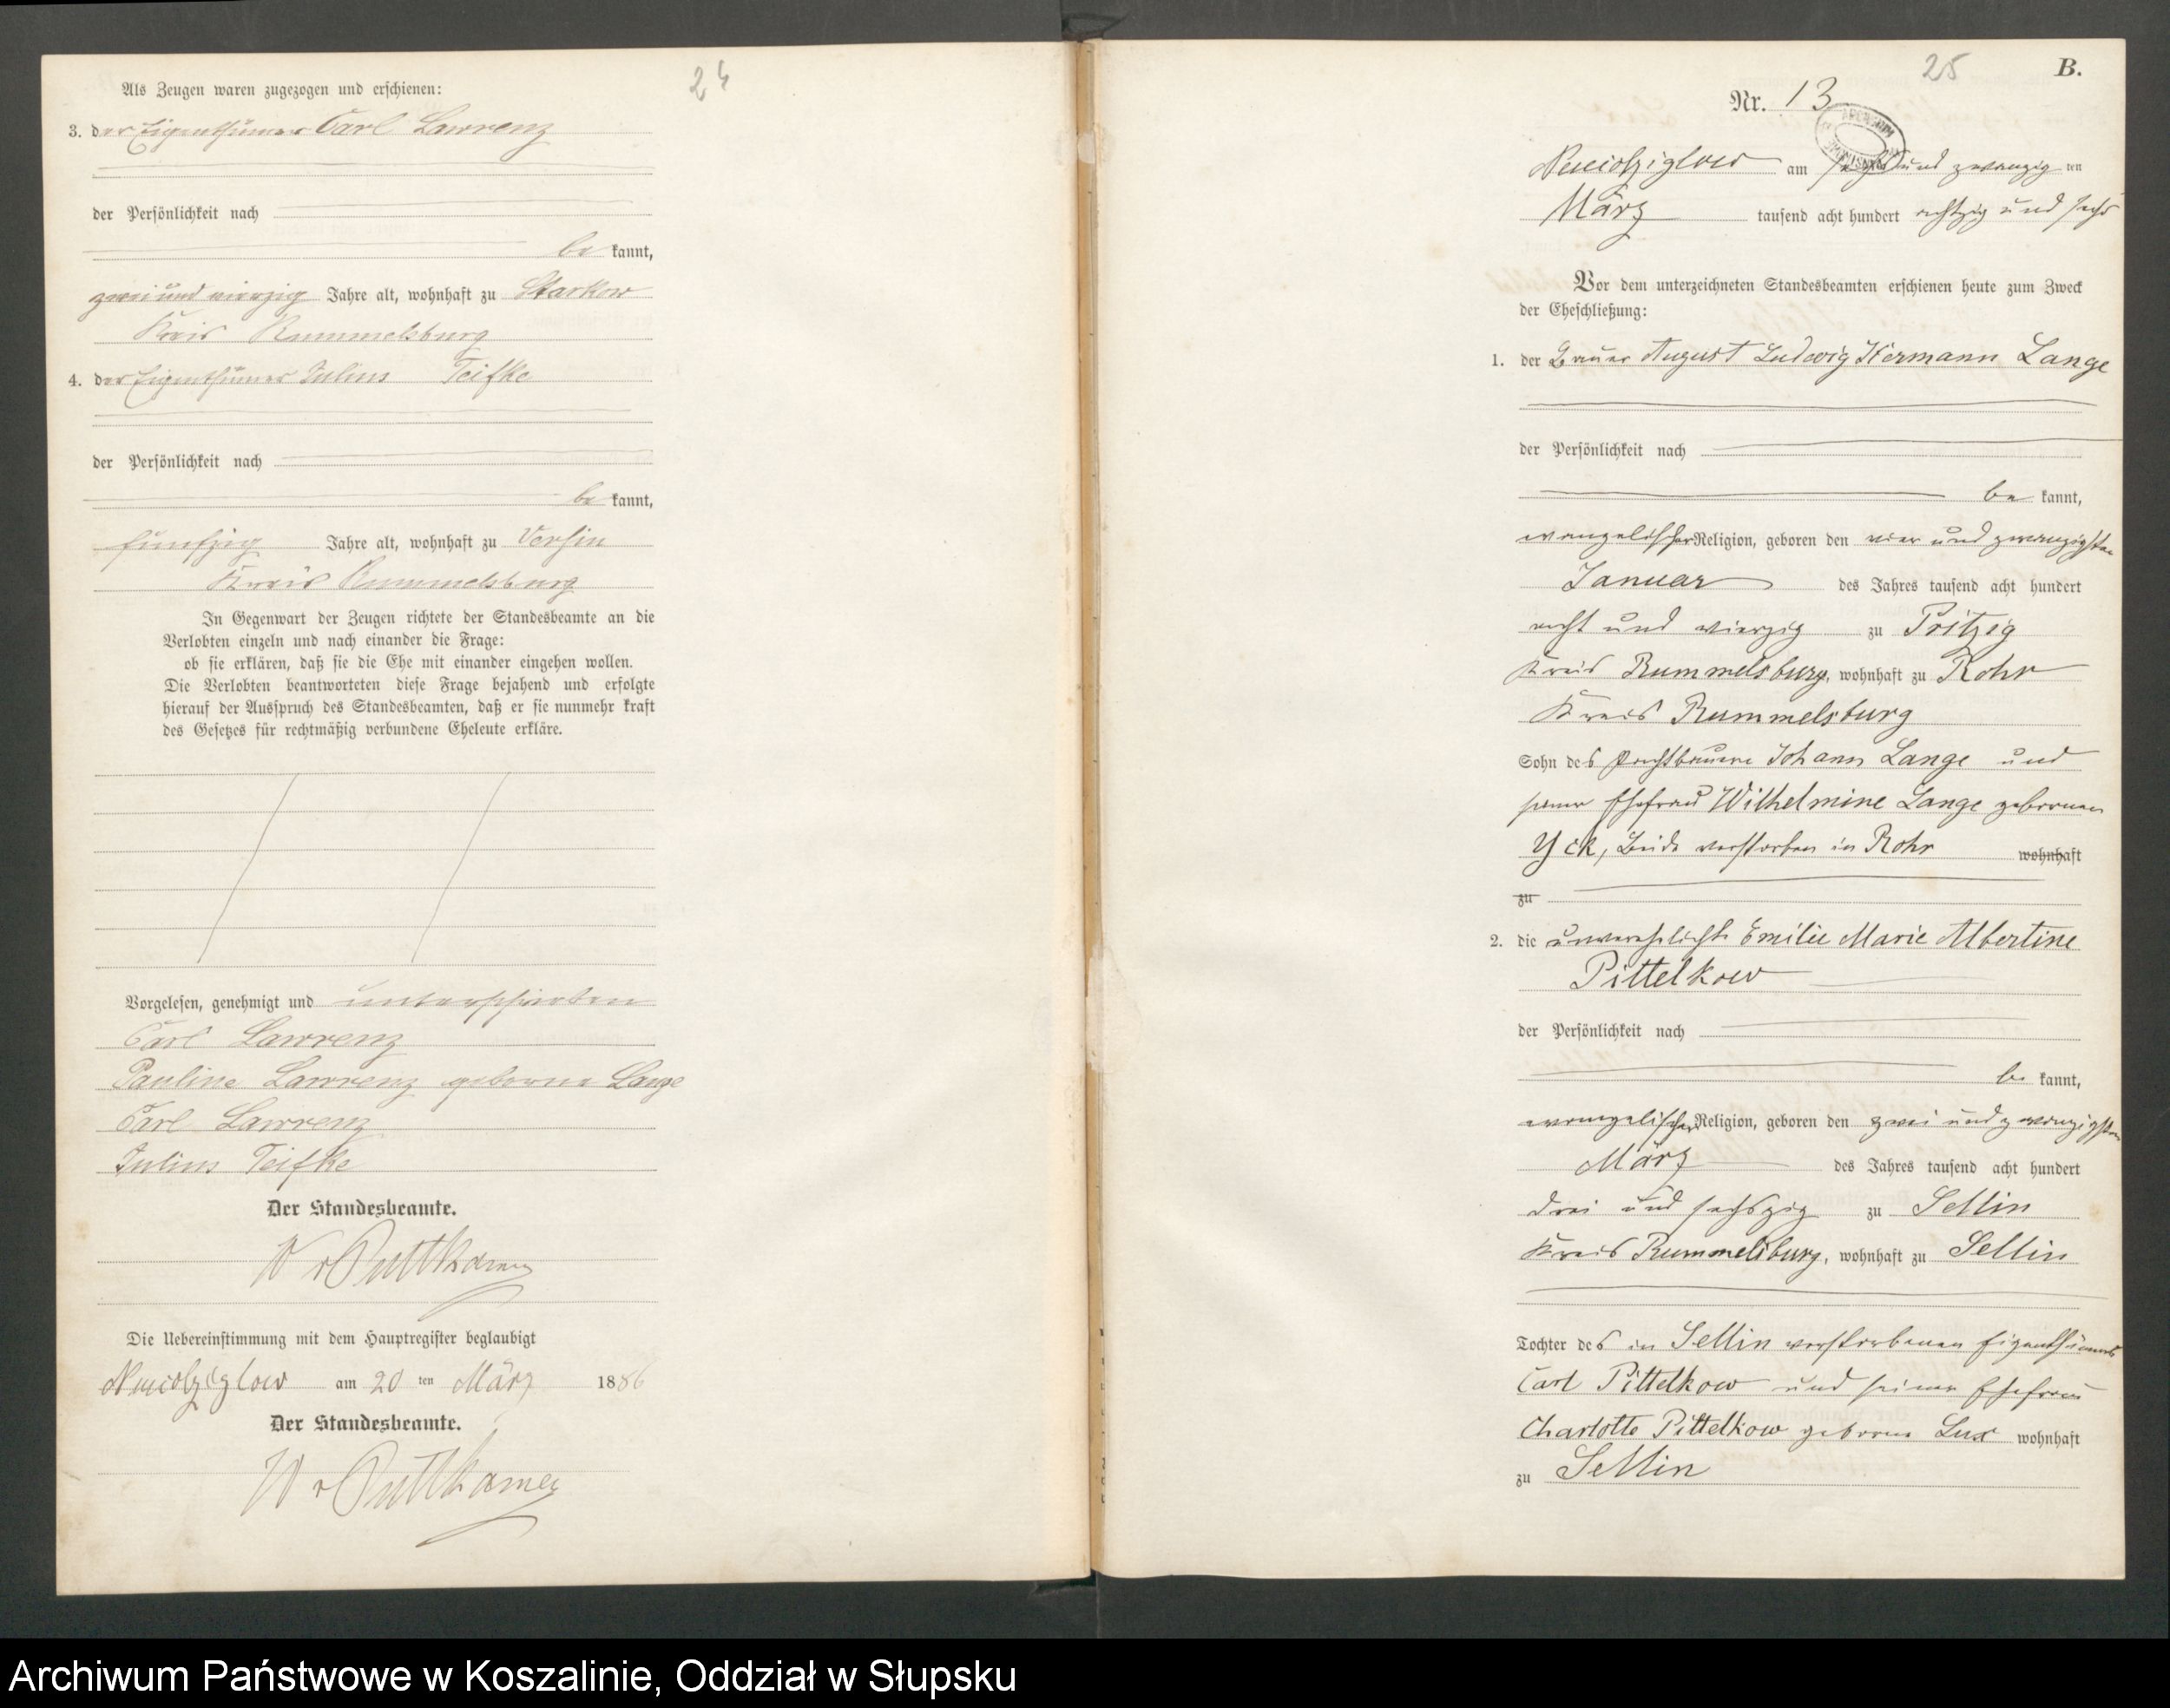 24
Als Zeugen waren zugezogen und erschienen:
3. der Eigenthümer Carl Lawrenz
der Persönlichkeit nach
be kannt,
zwei und vierzig Jahre alt, wohnhaft zu Starkow
Kreis Rummelsburg
4. der Eigenthümer Julius Teifke
der Persönlichkeit nach
be kannt,
fünfzig Jahre alt, wohnhaft zu Versin
Kreis Rummelsburg
In Gegenwart der Zeugen richtete der Standesbeamte an die
Verlobten einzeln und nach einander die Frage:
ob sie erklären, daß sie die Ehe mit einander eingehen wollen.
Die Verlobten beantworteten diese Frage bejahend und erfolgte
hierauf der Ausspruch des Standesbeamten, daß er sie nunmehr kraft
des Gesetzes für rechtmäßig verbundene Eheleute erkläre.
Vorgelesen, genehmigt und unterschrieben
Carl Lawrenz
Pauline Lawrenz geborne Lange
Carl Lawrenz
Julius Teifke
Der Standesbeamte.
W v Puttkamer
Die Uebereinstimmung mit dem Hauptregister beglaubigt
Neucolziglow am 20 ten März 1886
Der Standesbeamte.
W v Puttkamer
25 B.
Nr. 13
Neucolziglow am sechs und zwanzig ten
März tausend acht hundert achtzig und sechs
Vor dem unterzeichneten Standesbeamten erschienen heute zum Zweck
der Eheschließung:
1. der Bauer August Ludwig Hermann Lange
der Persönlichkeit nach
be kannt,
evangelischer Religion, geboren den vier und zwanzigsten
Januar des Jahres tausend acht hundert
acht und vierzig zu Pritzig
Kreis Rummelsburg, wohnhaft zu Rohr
Kreis Rummelsburg
Sohn des Johann Lange und
seiner Ehefrau Wilhelmine Lange gebornen
Yck, Beide verstorben in Rohr wohnhaft
zu
2. die unverehelichte Emilie Marie Albertine
Pittelkow
der Persönlichkeit nach
be kannt,
evangelischer Religion, geboren den zwei und zwanzigsten
März des Jahres tausend acht hundert
drei und sechszig zu Sellin
Kreis Rummelsburg, wohnhaft zu Sellin
Tochter des in Sellin verstorbenen Eigenthümers
Carl Pittelkow und seiner Ehefrau
Charlotte Pittelkow geborne Lux wohnhaft
zu Sellin
Archiwum Państwowe w Koszalinie, Oddział w Słupsku